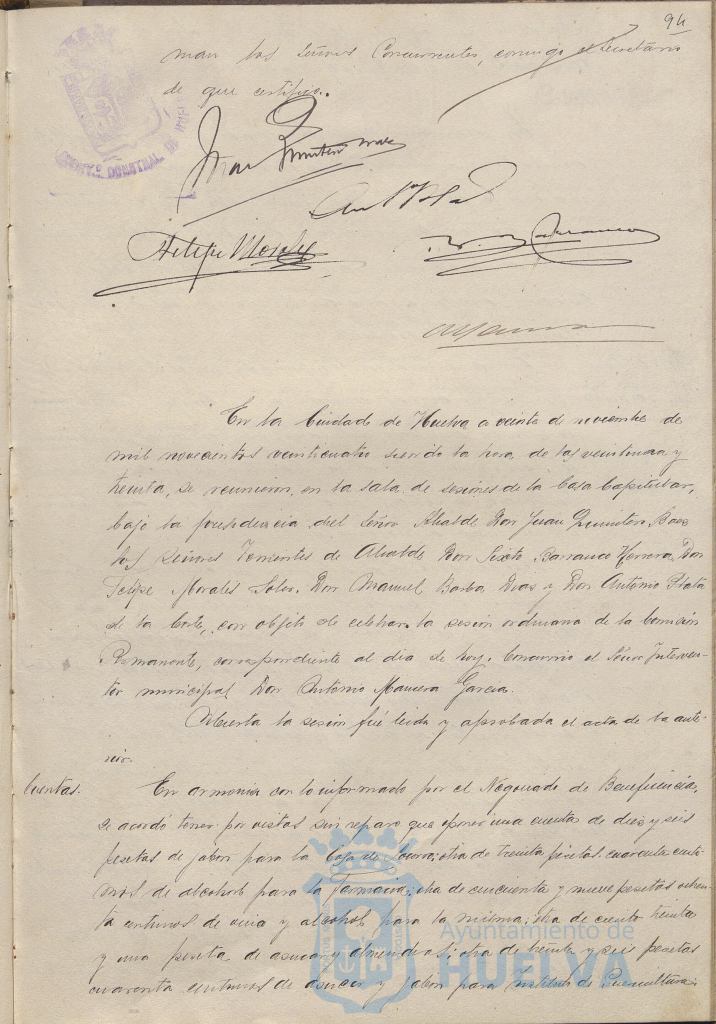 94
man los Señores Concurrentes, conmigo el Secretario
de que certifico.
AYUNTº. CONSTNAL. DE HUELVA
Juan Quintero Baez
Antº Plata
Felipe Morales
En la Ciudad de Huelva a veinte de noviembre de
mil novecientos veinticuatro siendo la hora de las veintiuna y
treinta, se reunieron, en la sala de sesiones de la Casa Capitular,
bajo la presidencia del Señor Alcalde Don Juan Quintero Baez
los Señores Tenientes de Alcalde Don Sixto Barranco Herrera, Don
Felipe Morales Soler, Don Manuel Barba Dias y Don Antonio Plata
de la Corte, con objeto de celebrar la sesión ordinaria de la Comisión
Permanente, correspondiente al dia de hoy. Concurrio el Señor Interven-
tor municipal Don Antonio Garcia.
Abierta la sesión fué leida y aprobada el acta de la ante-
rior.
Cuentas.
En armonia con lo informado por el Negociado de Beneficencia,
se acordó tener por vistas sin reparo que oponer una cuenta de diez y seis
pesetas de jabon para la Casa de Socorro; otra de treinta pesetas cuarenta centi-
mos de alcohol para la Farmacia; otra de cincuenta y nueve pesetas ochen-
ta centimos de y alcohol para la misma; otra de ciento treinta
y una peseta de azucar y almendras; otra de treinta y seis pesetas
cuarenta centimos de azucar y jabon para Instituto de Puericultura
Ayuntamiento de
HUELVA